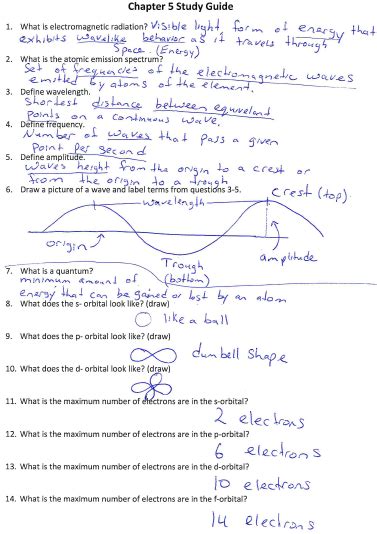 Chapter 5 Study Guide
1. What is electromagnetic radiation? Visible light form of energy that
exhibits wavelike behavior as it travels through
Space. (Energy)
2. What is the atomic emission spectrum?
Set of frequencies of the electromagnetic waves
emitted by atoms of the element.
3. Define wavelength.
Shortest distance between equivelant
points on a continuous wave.
4. Define frequency.
Number of waves that pass a given
Point per second
5. Define amplitude.
waves height from the origin to a crest or
from the origin to a trough
6. Draw a picture of a wave and label terms from questions 3-5.
crest (top).
wavelength
origin
amplitude
Trough
(bottom)
7. What is a quantum?
minimum amount of
energy that can be gained or lost by an atom
8. What does the s- orbital look like? (draw)
like a ball
9. What does the p- orbital look like? (draw)
dumbell shape
10. What does the d- orbital look like? (draw)
11. What is the maximum number of electrons are in the s-orbital?
2 electrons
12. What is the maximum number of electrons are in the p-orbital?
6 electrons
13. What is the maximum number of electrons are in the d-orbital?
10 electrons
14. What is the maximum number of electrons are in the f-orbital?
14 electrons